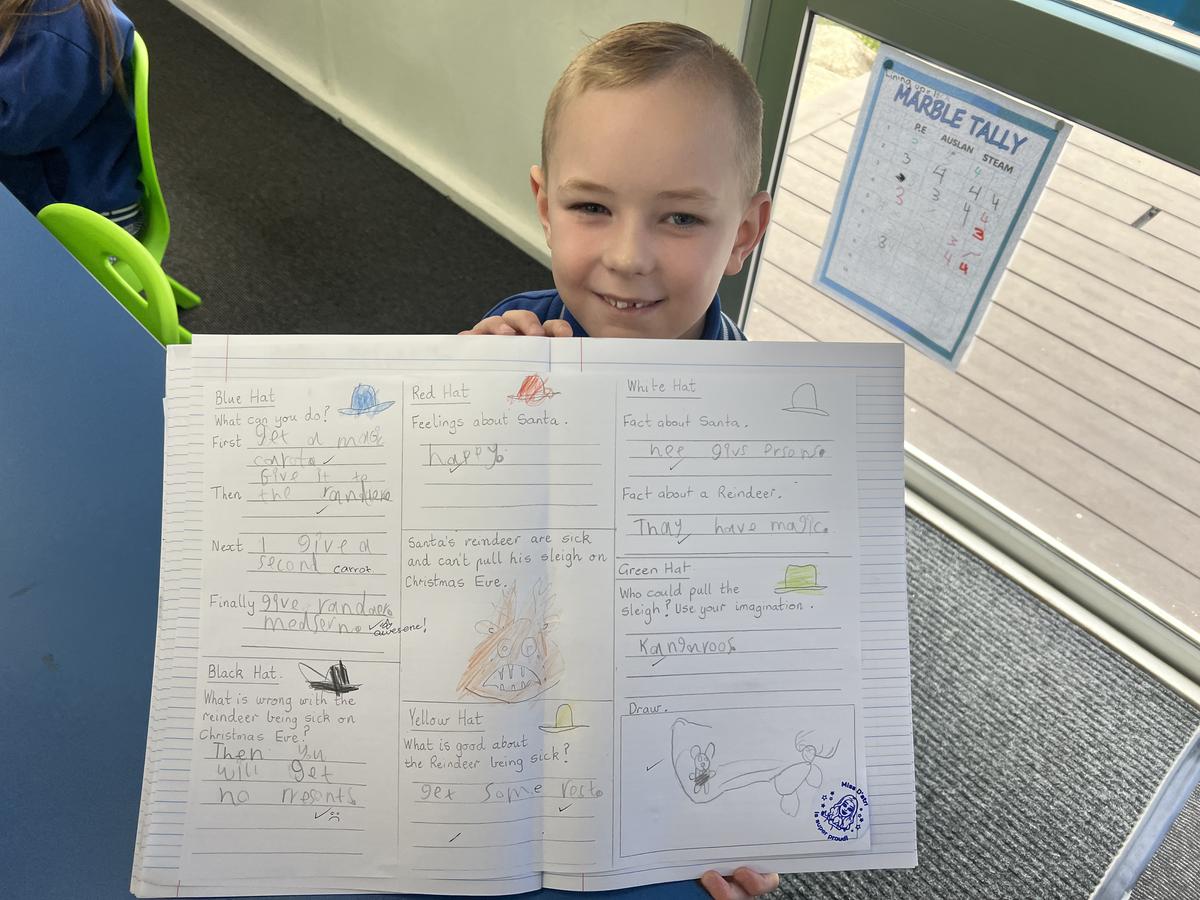 Blue Hat
What can you do?
First get a magic
carrot.
Give it to
Then the randere
Next I give a
second carrot.
Finally give randaer
medsern. awesome!
Black Hat.
What is wrong with the
reindeer being sick on
Christmas Eve?
Then you
will get
no presants
Red Hat
Feelings about Santa.
happy.
Santa's reindeer are sick
and can't pull his sleigh on
Christmas Eve.
Yellow Hat
What is good about
the Reindeer being sick?
get some rest.
White Hat
Fact about Santa.
hee givs
Fact about a Reindeer.
Thay have magic.
Green Hat
Who could pull the
sleigh? Use your imagination.
Kangaroos
Draw.
Miss D'atri
is super proud!
Lining up
MARBLE TALLY
P.E AUSLAN STEAM
3 4 4 4
3 3 4 4
3
3 3
4 4